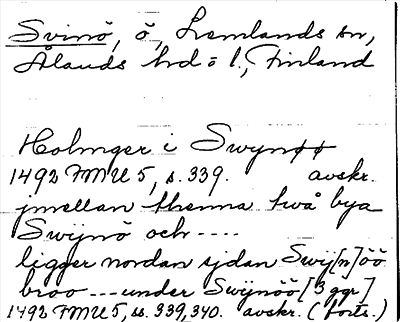 Svinö, ö, Lemlands sn,
Ålands hd o l., Finland
Holmger i Swynøø
1492 FMU 5, s. 339. avskr.
jmellan thenna twå bya
Swijnö och ----
ligger nordan sjdan Swij[n]öö
broo --- under Swijnöö [3 ggr]
1492 FMU 5, ss. 339, 340. avskr. (forts.)